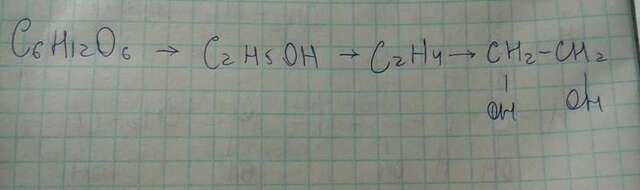 C₆H₁₂O₆ → C₂H₅OH → C₂H₄ → CH₂-CH₂
OH OH